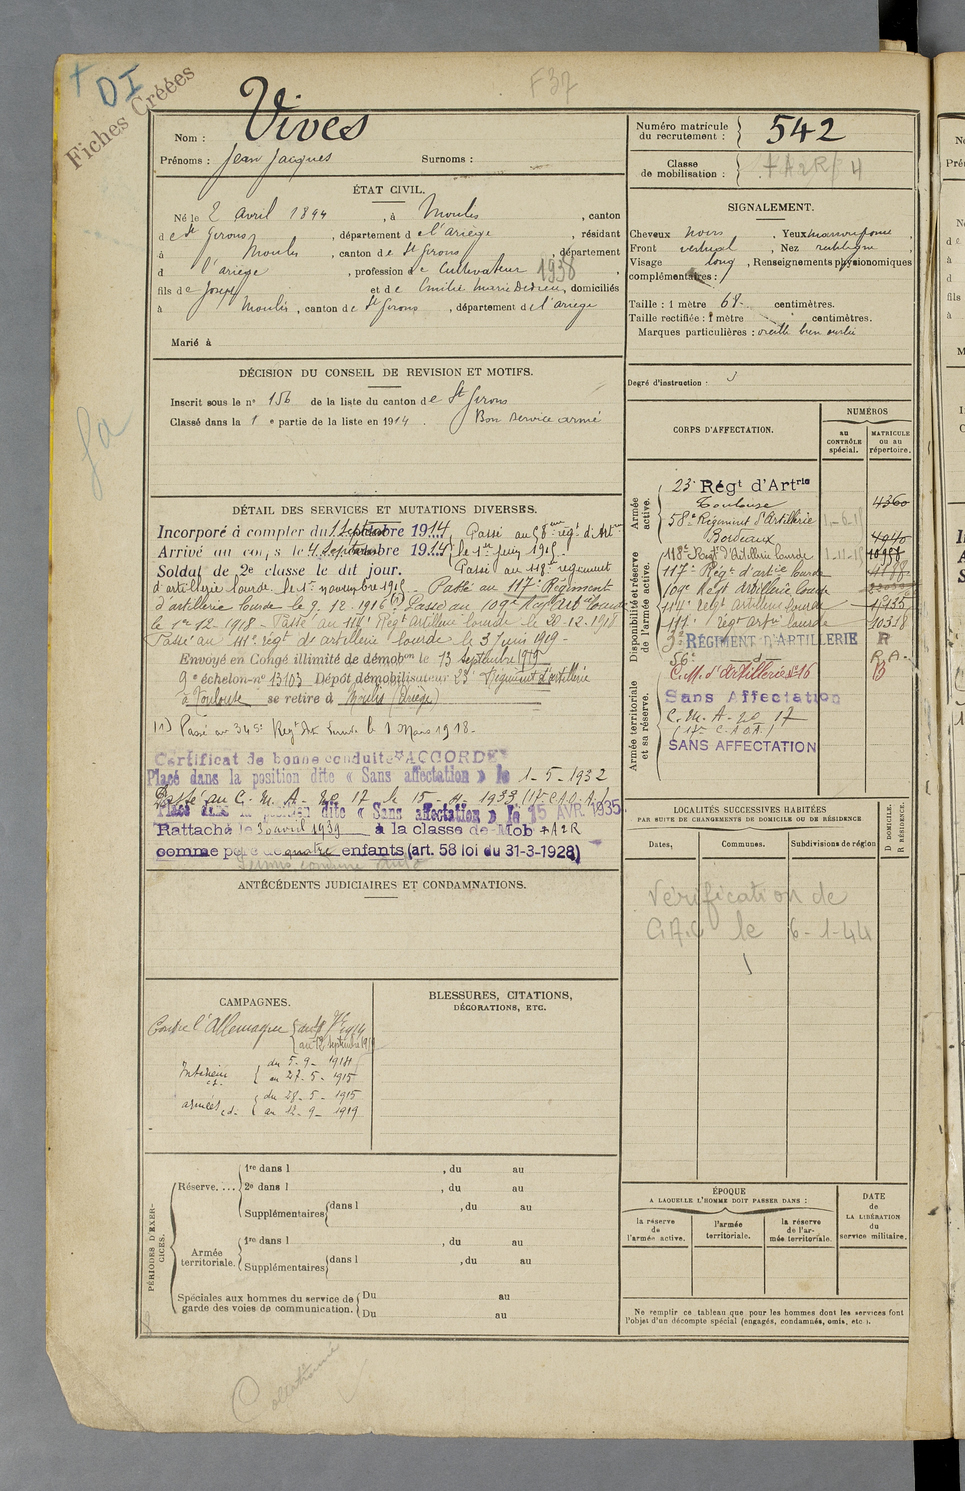 + DI
Fiches Créées
F37
Nom : Vives
Prénoms : Jean Jacques Surnoms :
Numéro matricule du recrutement : 542
Classe de mobilisation : + A 2 R / 4
ÉTAT CIVIL.
Né le 2 Avril 1894, à Moulis, canton
de St Girons, département de l'ariège, résidant
à Moulis, canton de St Girons, département
d l'ariège, profession de Cultivateur 1938
fils de Joseph et de Emilie Marie Dedieu, domiciliés
à Moulis, canton de St Girons, département de l'ariège
Marié à
SIGNALEMENT.
Cheveux noirs, Yeux
Front vertical, Nez rectiligne,
Visage long, Renseignements physionomiques
complémentaires :
Taille : 1 mètre 68 centimètres.
Taille rectifiée : 1 mètre centimètres.
Marques particulières : oreille bien ourlée
Degré d'instruction : 3
DÉCISION DU CONSEIL DE REVISION ET MOTIFS.
Inscrit sous le n° 156 de la liste du canton de St Girons
Classé dans la 1e partie de la liste en 1914. Bon service armé
CORPS D'AFFECTATION.
NUMÉROS
au CONTRÔLE spécial.
MATRICULE ou au répertoire.
Armée active.
23e Régt d'Artrie
Toulouse 4360
58e Régiment d'Artillerie
Bordeaux
Disponibilité et réserve de l'armée active.
118e Regt d'Artillerie lourde
117e Régt d'artie lourde
109e Regt Artillerie lourde
114e regt artillerie lourde
111e regt artie lourde 10318
3e RÉGIMENT D'ARTILLERIE R
56e d R.A.
C.M. d'artillerie n°16 B
Armée territoriale et sa réserve.
Sans Affectation
C. M. A. no 17
SANS AFFECTATION
DÉTAIL DES SERVICES ET MUTATIONS DIVERSES.
Incorporé à compter du 1 Septembre 1914, Passé au 58eme rég. d'Artie
Arrivé au corps le 4 Septembre 1914 le 1er Juin 1915.
Soldat de 2e classe le dit jour. Passé au 118e régiment
d'artillerie lourde le 1er novembre 1915. Passé au 117e Régiment
d'artillerie lourde le 9.12.1916 (1) Passé au 109e Regt Artie lourde
le 1er 12-1918 - Passé au 114e Regt Artillerie lourde le 20-12-1918
Passé au 111e régt de artillerie lourde le 3 Juin 1919 -
Envoyé en Congé illimité de démobon le 13 Septembre 1919
9e échelon - no 13103 Dépôt démobilisateur 23e Régiment d'artillerie
à Toulouse se retire à Moulis (Ariège)
(1) Passé au 345e Regt Art Lourde le 1 Mars 1918 -
Certificat de bonne conduite "ACCORDÉ"
Placé dans la position dite « Sans affectation » le 1-5-1932
Passé au C. M. A. no 17 le 15
Placé dans la position dite « Sans affectation » le 15 AVR 1935
Rattaché le 30 avril 1939 à la classe de Mob + A 2 R
comme père de quatre enfants (art. 58 loi du 31-3-1928)
ANTÉCÉDENTS JUDICIAIRES ET CONDAMNATIONS.
LOCALITÉS SUCCESSIVES HABITÉES
PAR SUITE DE CHANGEMENTS DE DOMICILE OU DE RÉSIDENCE
Dates,
Communes.
Subdivisions de région
D DOMICILE. R RÉSIDENCE.
Vérification de
le 6-1-44
CAMPAGNES.
Contre l'Allemagne
au 12 septembre 1919
Intérieur du 5-9-1914
au 27-5-1915
armées du 28-5-1915
au 12-9-1919
BLESSURES, CITATIONS,
DÉCORATIONS, ETC.
PÉRIODES D'EXERCICES.
Réserve....
1re dans l , du au
2e dans l , du au
Supplémentaires dans l , du au
Armée territoriale.
1re dans l , du au
Supplémentaires dans l , du au
Spéciales aux hommes du service de garde des voies de communication.
Du au
Du au
ÉPOQUE
A LAQUELLE L'HOMME DOIT PASSER DANS :
la réserve de l'armée active.
l'armée territoriale.
la réserve de l'armée territoriale.
DATE de LA LIBÉRATION du service militaire.
Ne remplir ce tableau que pour les hommes dont les services font
l'objet d'un décompte spécial (engagés, condamnés, omis, etc.).